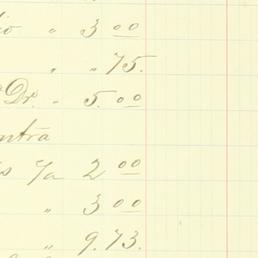 " 3 00
" " 75.
Dr. " 5. 00
ntra
s 7/a 2 00
" 3 00
" 9.73.